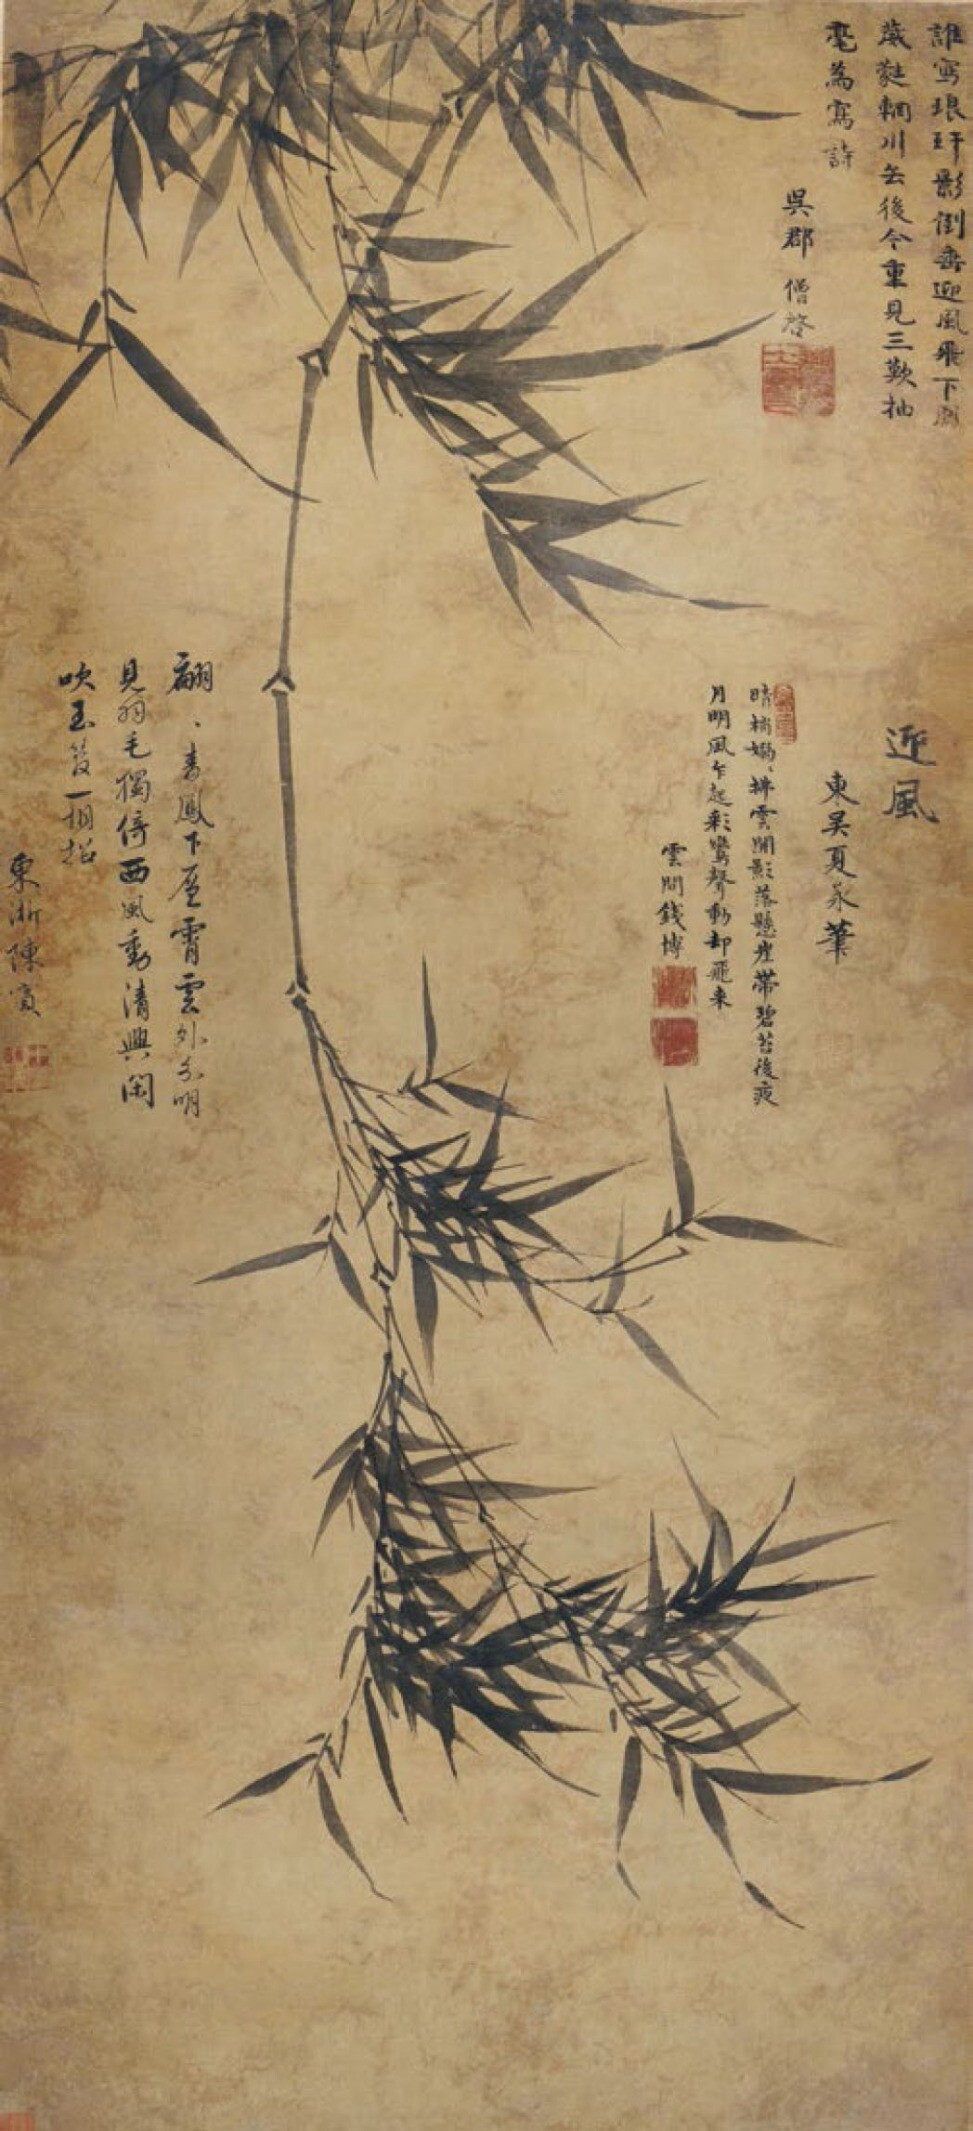 誰寫琅玕影倒垂迎風飛下鳳
葳蕤輞川去後今重見三歎抽
毫為寫詩
吳郡 僧啓
迎風
東吴夏永筆
晴梢嫋、拂雲開影落懸崖帶碧苔後夜
月明風乍起彩鸞聲動却飛来
雲間錢博
翩、青鳳下層霄雲外分明
見羽毛獨倚西風動清興閑
吹玉笙一相招
東浙陳賓